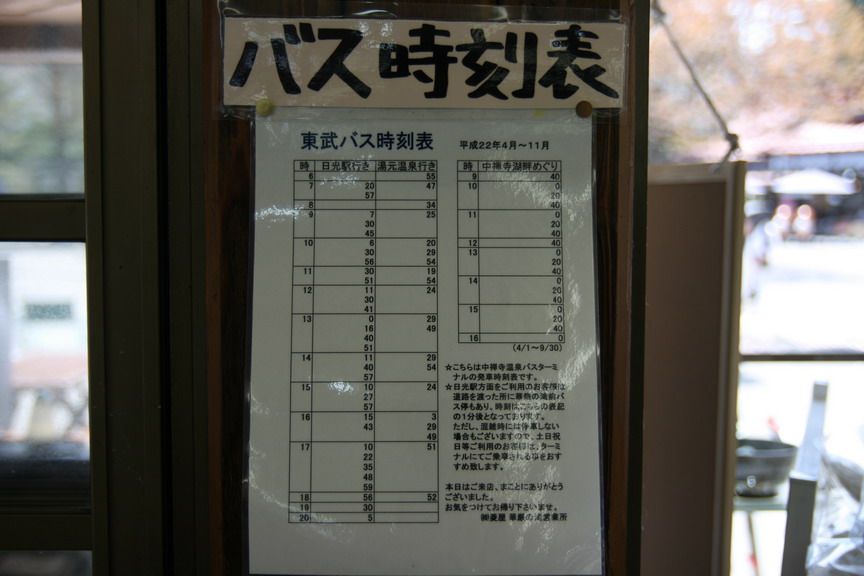 バス時刻表
東武バス時刻表 平成22年4月～11月
時 日光駅行き 湯元温泉行き
6 55
7 20 47
57
8 34
9 7 25
30
45
10 6 20
30 29
56 54
11 30 19
51 54
12 11 24
30
41
13 0 29
16 49
40
51
14 11 29
40 54
57
15 10 24
27
57
16 15 3
43 29
49
17 10 51
22
35
48
59
18 56 52
19 30
20 5
時 中禅寺湖畔めぐり
9 40
10 0
20
40
11 0
20
40
12 40
13 0
20
40
14 0
20
40
15 0
20
40
16 0
(4/1～9/30)
☆こちらは中禅寺温泉バスターミ
ナルの発車時刻表です。
☆日光駅方面をご利用のお客様は
道路を渡った所に華厳の滝前バ
ス停もあり、時刻はこちらの表記
の1分後となっております。
ただし、混雑時には停車しない
場合もございますので、土日祝
日等ご利用のお客様は、ターミ
ナルにてご乗車される事をおす
すめ致します。
本日はご来店、まことにありがとう
ございました。
お気をつけてお帰り下さいませ。
㈱菱屋 華厳の滝営業所